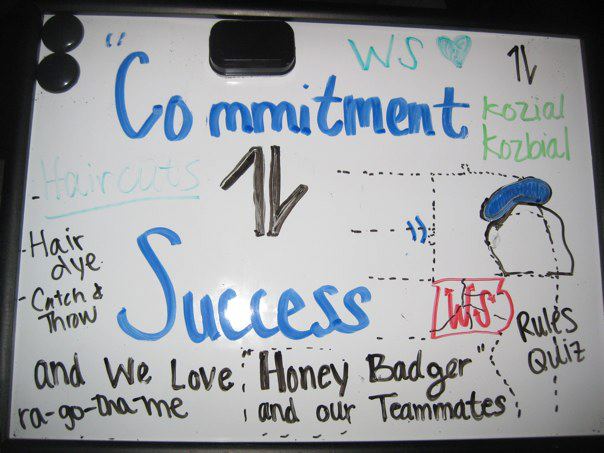 WS
"Commitment
Kozial
Kozbial
Haircuts
- Hair
dye
- Catch &
Throw
Success
WS
Rules
Quiz
and We Love "Honey Badger"
ra-go-tha-me and our Teammates